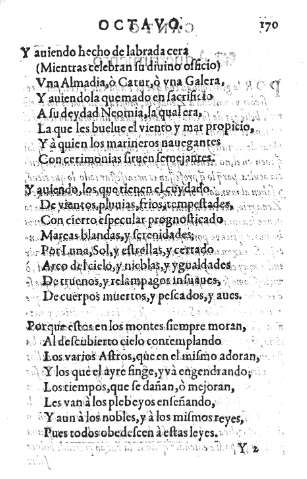 OCTAVO. 170
Y auiendo hecho de labrada cera
(Mientras celebran su diuino officio)
Vna Almadia, ò Catur, ò vna Galera,
Y auiendola quemado en sacrificio
A su deydad Neomia, la qual era,
La que les buelue el viento y mar propicio,
Y à quien los marineros nauegantes
Con cerimonias siruen semejantes.
Y auiendo, los que tienen el cuydado
De vientos, pluuias, frios, tempestades,
Con cierto especular prognosticado
Mareas blandas, y serenidades;
Por Luna, Sol, y estrellas, y certado
Arco del cielo, y nieblas, y ygualdades
De truenos, y relampagos insuaues,
De cuerpos muertos, y pescados, y aues.
Porque estos en los montes siempre moran,
Al descubierto cielo contemplando
Los varios Astros, que en el mismo adoran,
Y los que el ayre finge, y và engendrando;
Los tiempos, que se dañan, ò mejoran,
Les van à los plebeyos enseñando,
Y aun à los nobles, y à los mismos reyes,
Pues todos obedescen à estas leyes.
Y 2